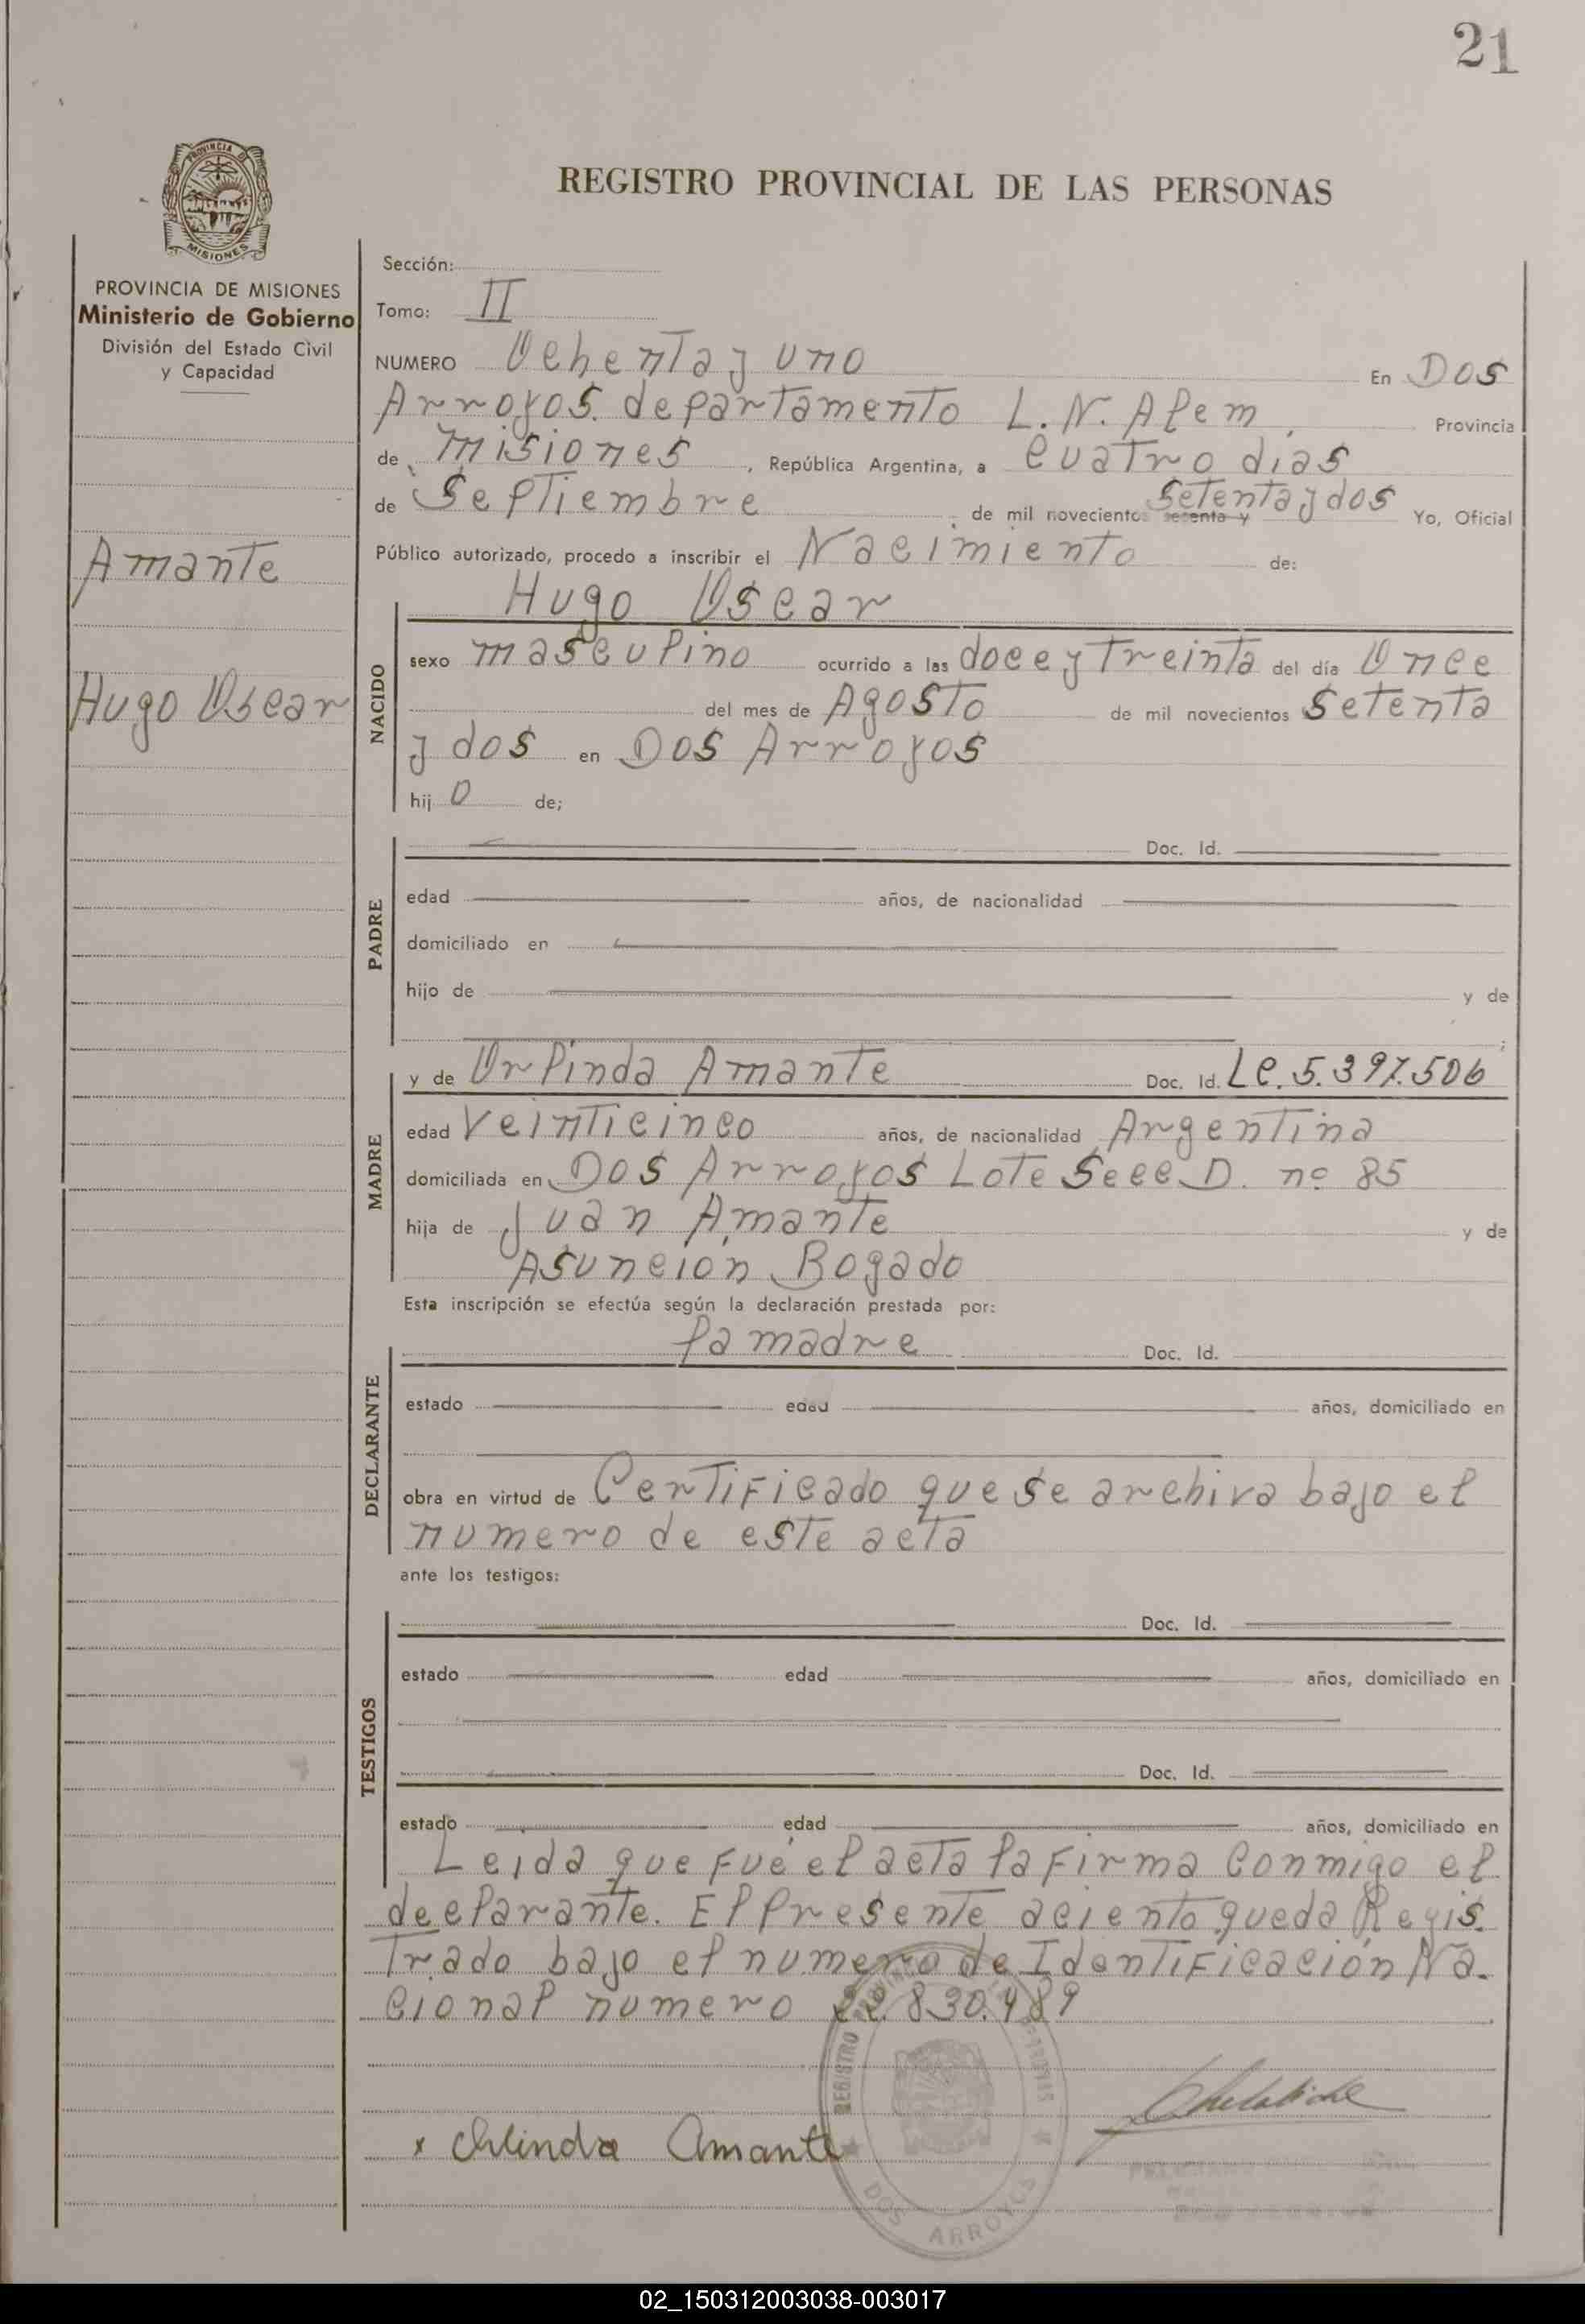 21
PROVINCIA DE
MISIONES
REGISTRO PROVINCIAL DE LAS PERSONAS
PROVINCIA DE MISIONES
Ministerio de Gobierno
División del Estado Civil
y Capacidad
Amante
Hugo Oscar
Sección:
Tomo: II
NUMERO Ochenta y uno En Dos
Arroyos. departamento L. N. Alem, Provincia
de Misiones, República Argentina, a cuatro dias
de Septiembre de mil novecientos setenta y Setenta y dos Yo, Oficial
Público autorizado, procedo a inscribir el Nacimiento de:
NACIDO
Hugo Oscar
sexo masculino ocurrido a las doce y treinta del día Once
del mes de Agosto de mil novecientos setenta
y dos en Dos Arroyos
hij o de;
PADRE
Doc. Id.
edad años, de nacionalidad
domiciliado en
hijo de y de
MADRE
y de Orlinda Amante Doc. Id. Lc. 5.397.506
edad veinticinco años, de nacionalidad Argentina
domiciliada en Dos Arroyos Lote Secc D. nº 85
hija de Juan Amante y de
Asunción Bogado
Esta inscripción se efectúa según la declaración prestada por:
DECLARANTE
la madre Doc. Id.
estado edad años, domiciliado en
obra en virtud de Certificado que se archiva bajo el
numero de este acta
ante los testigos:
TESTIGOS
Doc. Id.
estado edad años, domiciliado en
Doc. Id.
estado edad años, domiciliado en
Leida que fué el acta la firma conmigo el
declarante. El presente aciento queda Regis.
trado bajo el numero de Identificación Na.
cional numero 22.830.489
x Orlinda Amante
REGISTRO PROVINCIAL
DOS ARROYOS
02_150312003038-003017